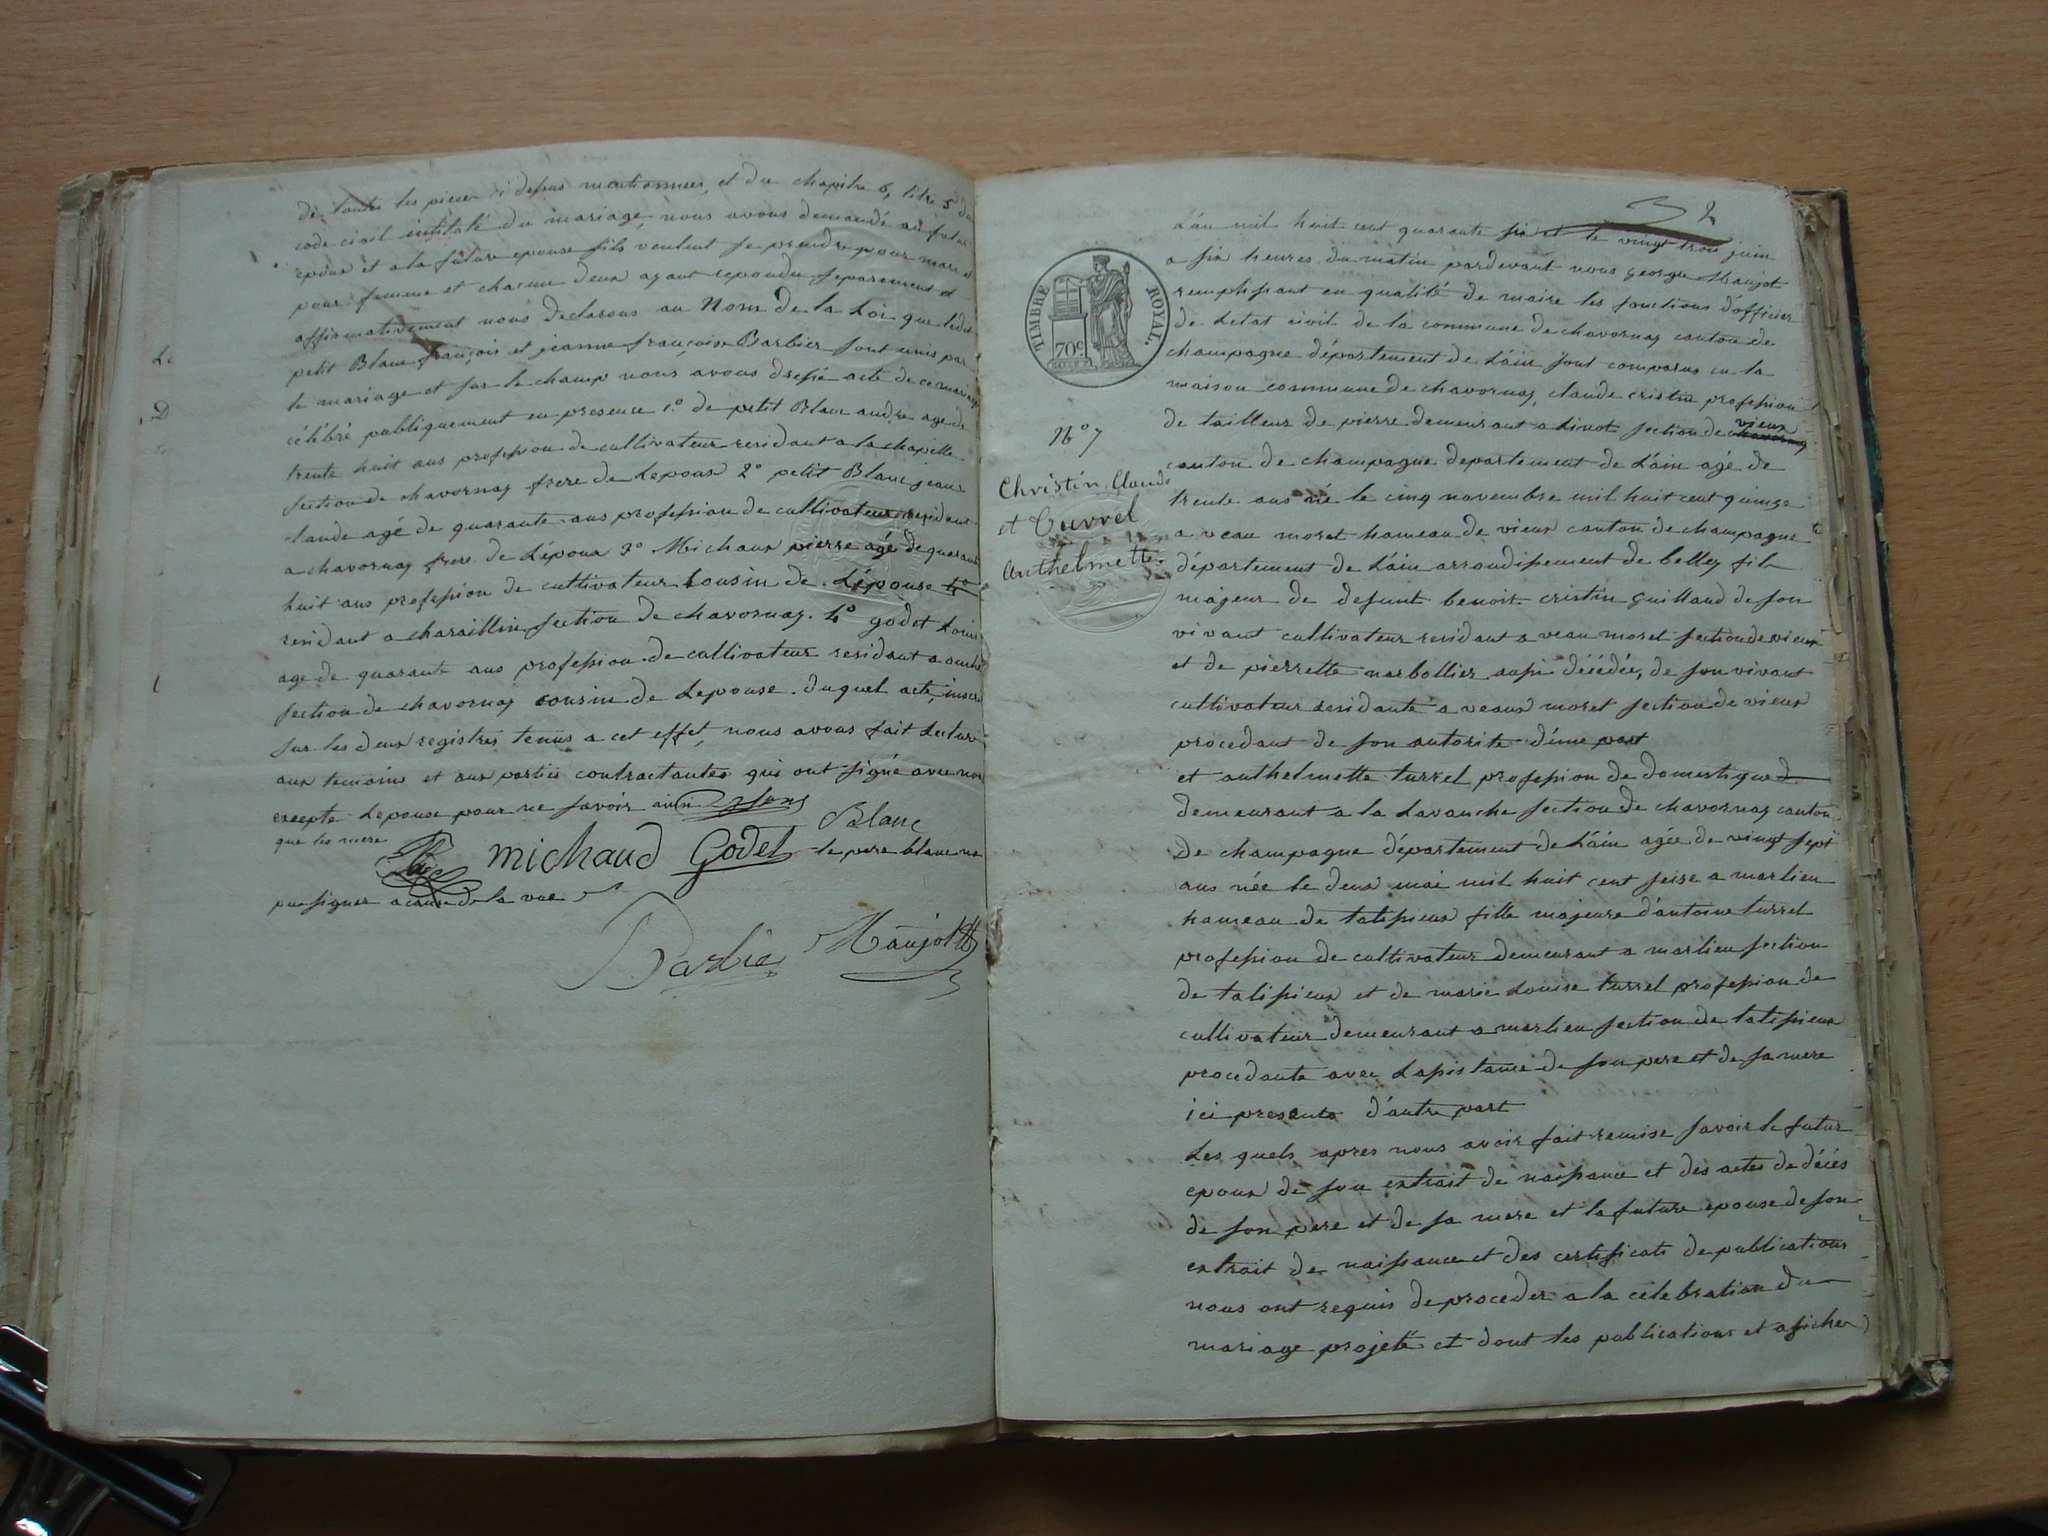 de toutes les pieces ci dessus mentionnees, et du chapitre 6, titre 5 du
code civil intitulé du mariage, nous avons demandé au futur
epoux et a la future epouse sils veulent se prendre pour mari et
pour femme et chacun deux ayant repondu separement et
affirmativement nous declarons au Nom de la Loi que ledit
petit Blanc françois et jeanne françoise Barbier sont unis par
le mariage et sur le champ nous avons dressé acte de ce mariage
célébré publiquement en presence 1º de petit Blanc andre age de
trente huit ans profession de cultivateur residant a la chapelle
section de chavornay frere de Lepoux 2º petit Blanc jean
claude agé de quarante ans profession de cultivateur residant
a chavornay frere de Lépoux 3º Michaux pierre agé de quarante
huit ans profession de cultivateur cousin de Lépouse 4º
residant a charaillin section de chavornay. 4º godet Louis
age de quarante ans profession de cultivateur residant a
section de chavornay cousin de Lepouse. duquel acte, inscrit
sur les deux registres tenus a cet effet, nous avons fait Lecture
aux temoins et aux parties contractantes qui ont signé avec nous
excepte Lepouse pour ne savoir ainsi
que les mere
Blanc
michaud Godet le pere blanc na
pu signer a cause de la vue
Barbier Maujot
2
TIMBRE ROYAL.
70c
Nº 7
Christin Claude
et Turrel
Anthelmette.
L'án mil huit cent quarante six et le vingt trois juin
a six heures du matin pardevant nous george Maujot
remplissant en qualité de maire les fonctions d'officier
de Létat civil de la commune de chavornay canton de
champagne département de L'áin sont comparus en la
maison commune de chavornay, claude cristin profession
de tailleur de pierre demeurant a Linot section de chavornay vieux
canton de champagne departement de L'ain agé de
trente ans né le cinq novembre mil huit cent quinze
a veau moret hameau de vieux canton de champagne
département de L'áin arrondissement de belley fils
majeur de defunt benoit cristin Guilland de son
vivant cultivateur residant a veau moret section de vieux
et de pierrette narbollier aussi décédée, de son vivant
cultivateur residante a veaux moret section de vieux
procedant de son autorite d'úne part
et anthelmette turrel profession de domestique
demeurant a la Lavanche section de chavornay canton
de champagne département de L'áin agée de vingt sept
ans née le deux mai mil huit cent seise a marlieu
hameau de talissieux fille majeure d'antoine turrel
profession de cultivateur demeurant a marlieu section
de talissieux et de marie Louise turrel profession de
cultivateur demeurant a marlieu section de talissieux
procedante avec Lassistance de son pere et de sa mere
ici presents d'autre part
Les quels apres nous avoir fait remise savoir le futur
epoux de son extrait de naissance et des actes de décés
de son pere et de sa mere et la future epouse de son
extrait de naissance et des certificats de publications
nous ont requis de proceder a la célebration du
mariage projeté et dont les publications et afiches